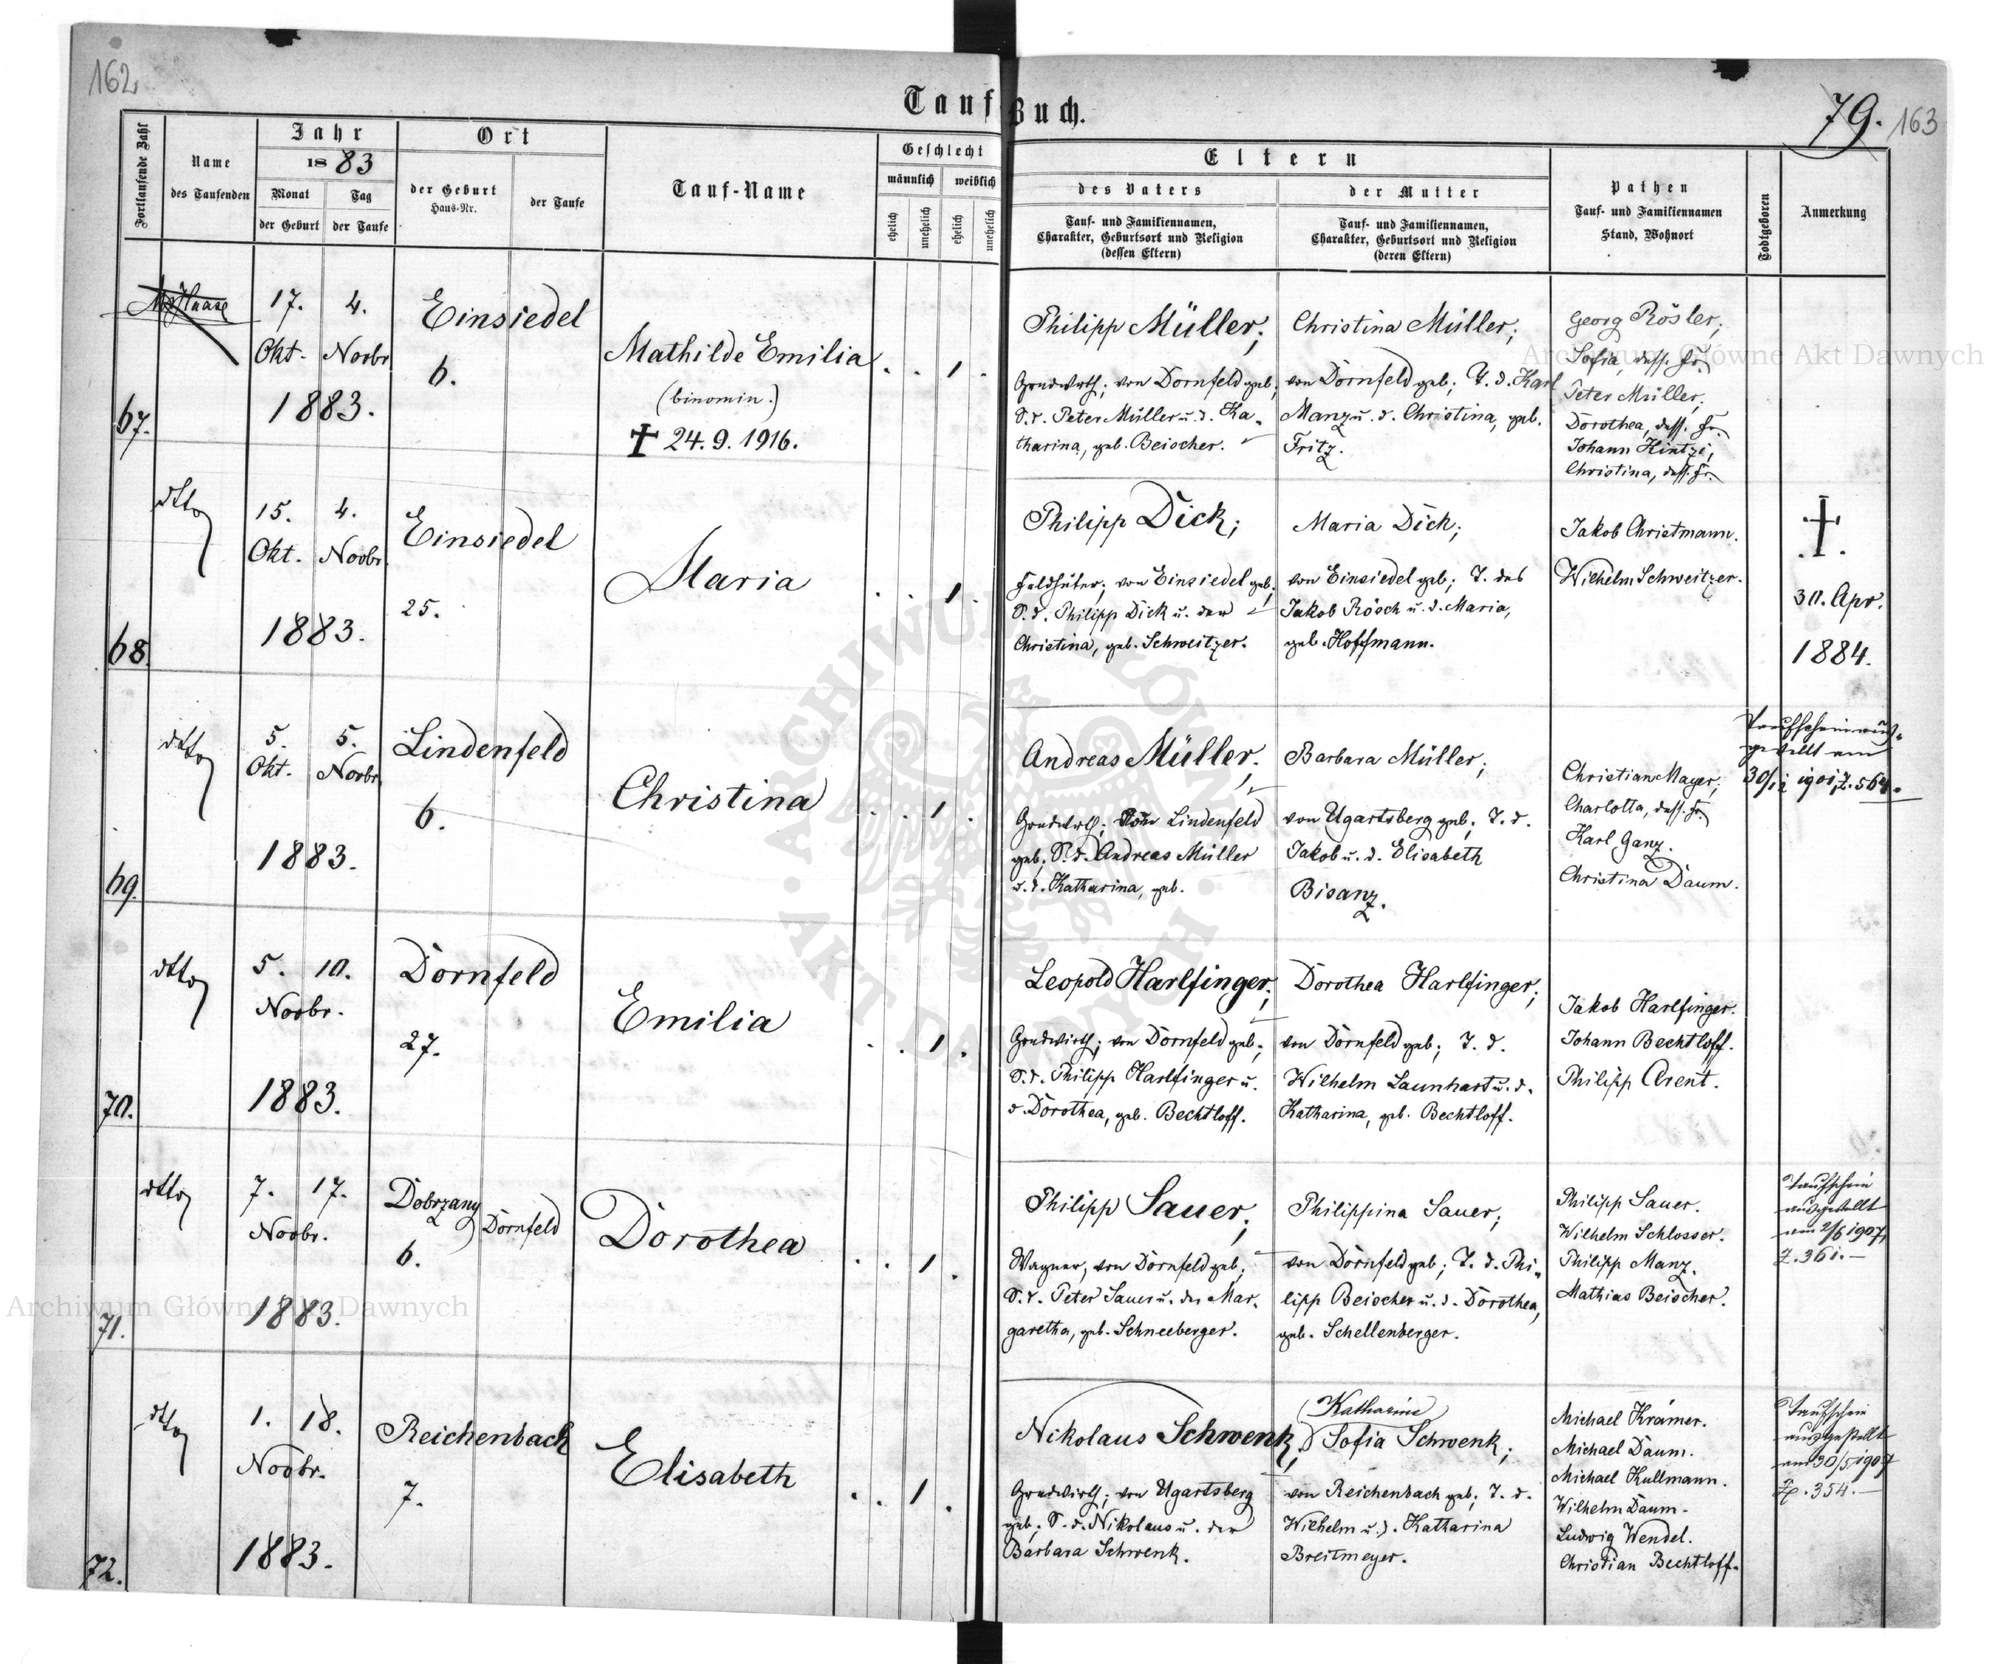 162
79. 163
Tauf Buch.
Fortlaufende Zahl
Name
des Taufenden
Jahr
1883
Monat
der Geburt
Tag
der Taufe
Ort
der Geburt
Haus-Nr.
der Taufe
Tauf-Name
Geschlecht
männlich weiblich
ehelich unehelich ehelich unehelich
Eltern
des Vaters
Tauf- und Familiennamen,
Charakter, Geburtsort und Religion
(dessen Eltern)
der Mutter
Tauf- und Familiennamen,
Charakter, Geburtsort und Religion
(deren Eltern)
Pathen
Tauf- und Familiennamen
Stand, Wohnort
Todtgeboren
Anmerkung
67.
Haase
17. 4.
Okt. Novbr.
1883.
Einsiedel
6.
Mathilde Emilia
(binomin.)
✝ 24.9.1916.
1
Philipp Müller;
Grundwirth; von Dornfeld geb;
S.d. Peter Müller u. d. Ka-
tharina, geb. Beischer.
Christina Müller;
von Dornfeld geb; T. d. Karl
Manz u. d. Christina, geb.
Fritz.
Georg Rösler;
Sofia, dess. Fr.
Peter Müller,
Dorothea, dess. Fr.
Johann Hintzi,
Christina, dess. Fr.
68.
dtto
15. 4.
Okt. Novbr.
1883.
Einsiedel
25.
Maria
1
Philipp Dick;
Feldhüter; von Einsiedel geb;
S. d. Philipp Dick u. der
Christina, geb. Schweitzer.
Maria Dick;
von Einsiedel geb; T. des
Jakob Rösch u. d. Maria,
geb. Hoffmann.
Jakob Christmann.
Wilhelm Schweitzer.
✝
30. Apr.
1884.
69.
dtto
5. 5.
Okt. Novbr.
1883.
Lindenfeld
6.
Christina
1
Andreas Müller;
Grundwirth; von Lindenfeld
geb; S. d. Andreas Müller
u. d. Katharina, geb.
Barbara Müller;
von Ugartsberg geb; T. d.
Jakob u. d. Elisabeth
Bisanz.
Christian Mayer;
Charlotta, dess. Fr.
Karl Ganz.
Christina Daum.
Taufschein aus-
gestellt am
1901, Z. 564.
70.
dtto
5. 10.
Novbr.
1883.
Dornfeld
27.
Emilia
1
Leopold Harlfinger;
Grundwirth; von Dornfeld geb;
S. d. Philipp Harlfinger u.
d. Dorothea, geb. Bechtloff.
Dorothea Harlfinger;
von Dornfeld geb; T. d.
Wilhelm Launhart u. d.
Katharina, geb. Bechtloff.
Jakob Harlfinger.
Johann Bechtloff.
Philipp Arent.
71.
dtto
7. 17.
Novbr.
1883.
Dobrzany
6.
Dornfeld
Dorothea
1
Philipp Sauer;
Wagner; von Dornfeld geb;
S. d. Peter Sauer u. der Mar-
garetha, geb. Schneeberger.
Philippina Sauer;
von Dornfeld geb; T. d. Phi-
lipp Beischer u. d. Dorothea,
geb. Schellenberger.
Philipp Sauer.
Wilhelm Schlosser.
Philipp Manz.
Mathias Beischer.
Taufschein
ausgestellt
am 2/6 1907,
Z. 361.—
72.
dtto
1. 18.
Novbr.
1883.
Reichenbach
7.
Elisabeth
1
Nikolaus Schwenk;
Grundwirth; von Ugartsberg
geb; S. d. Nikolaus u. der
Barbara Schwenk.
Katharina
Sofia Schwenk;
von Reichenbach geb; T. d.
Wilhelm u. d. Katharina
Breitmeyer.
Michael Krämer.
Michael Daum.
Michael Kullmann.
Wilhelm Daum.
Ludwig Wendel.
Christian Bechtloff.
Taufschein
ausgestellt
am 30/5 1907
Z. 354.—
Archiwum Główne Akt Dawnych
Archiwum Główne Akt Dawnych
ARCHIWUM GŁÓWNE
AKT DAWNYCH